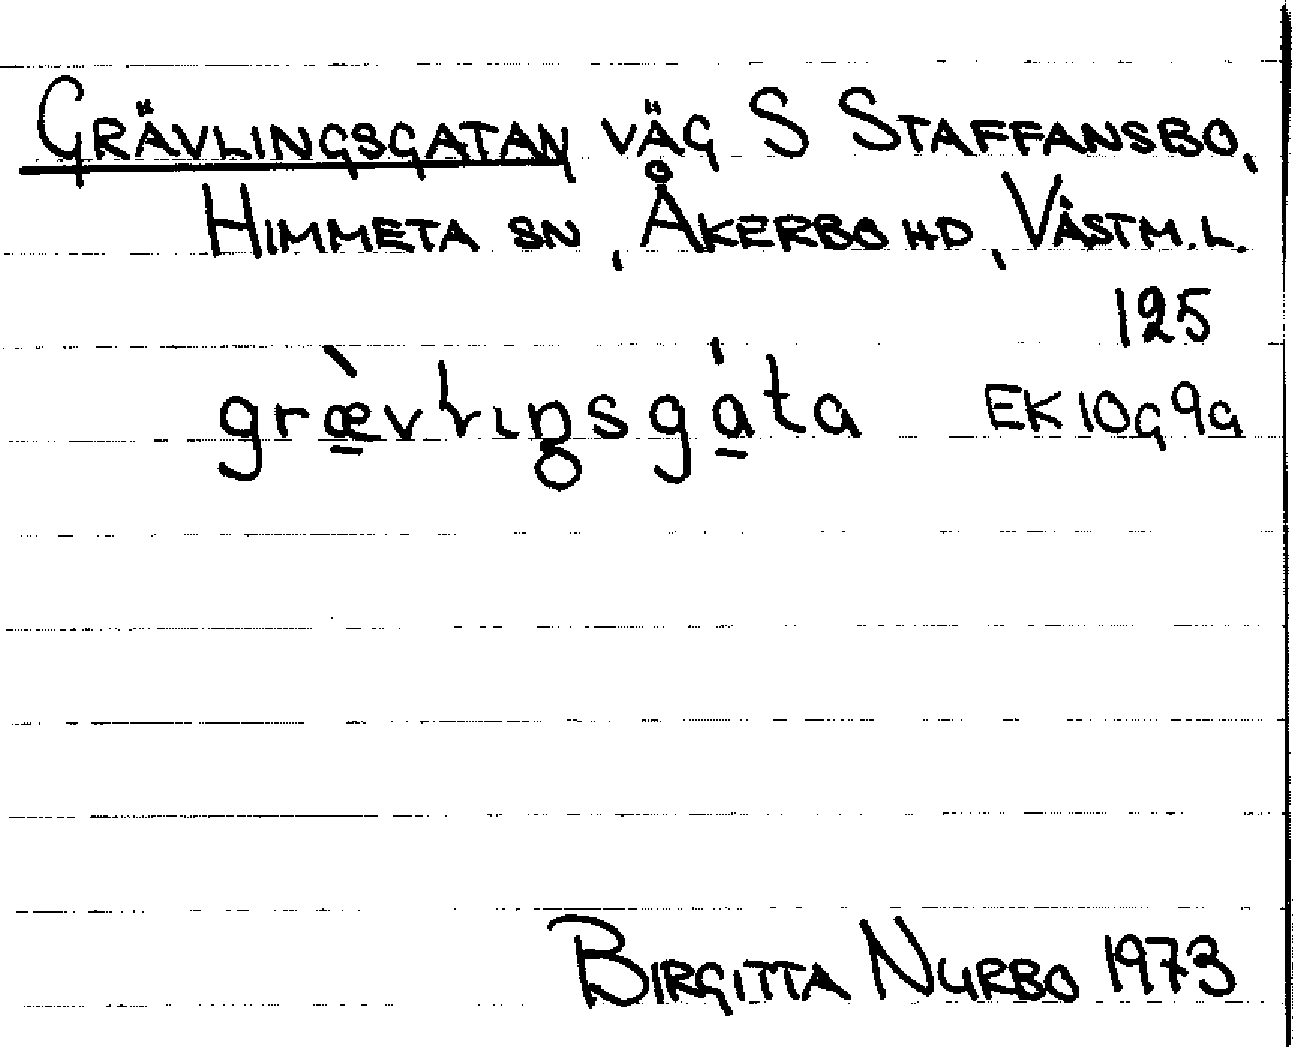 GRÄVLINGSGATAN VÄG S STAFFANSBO,
HIMMETA SN, ÅKERBO HD, VÄSTM. L.
125
græ̠̀vlıŋsgá̠ta EK 10G 9a
BIRGITTA NURBO 1973